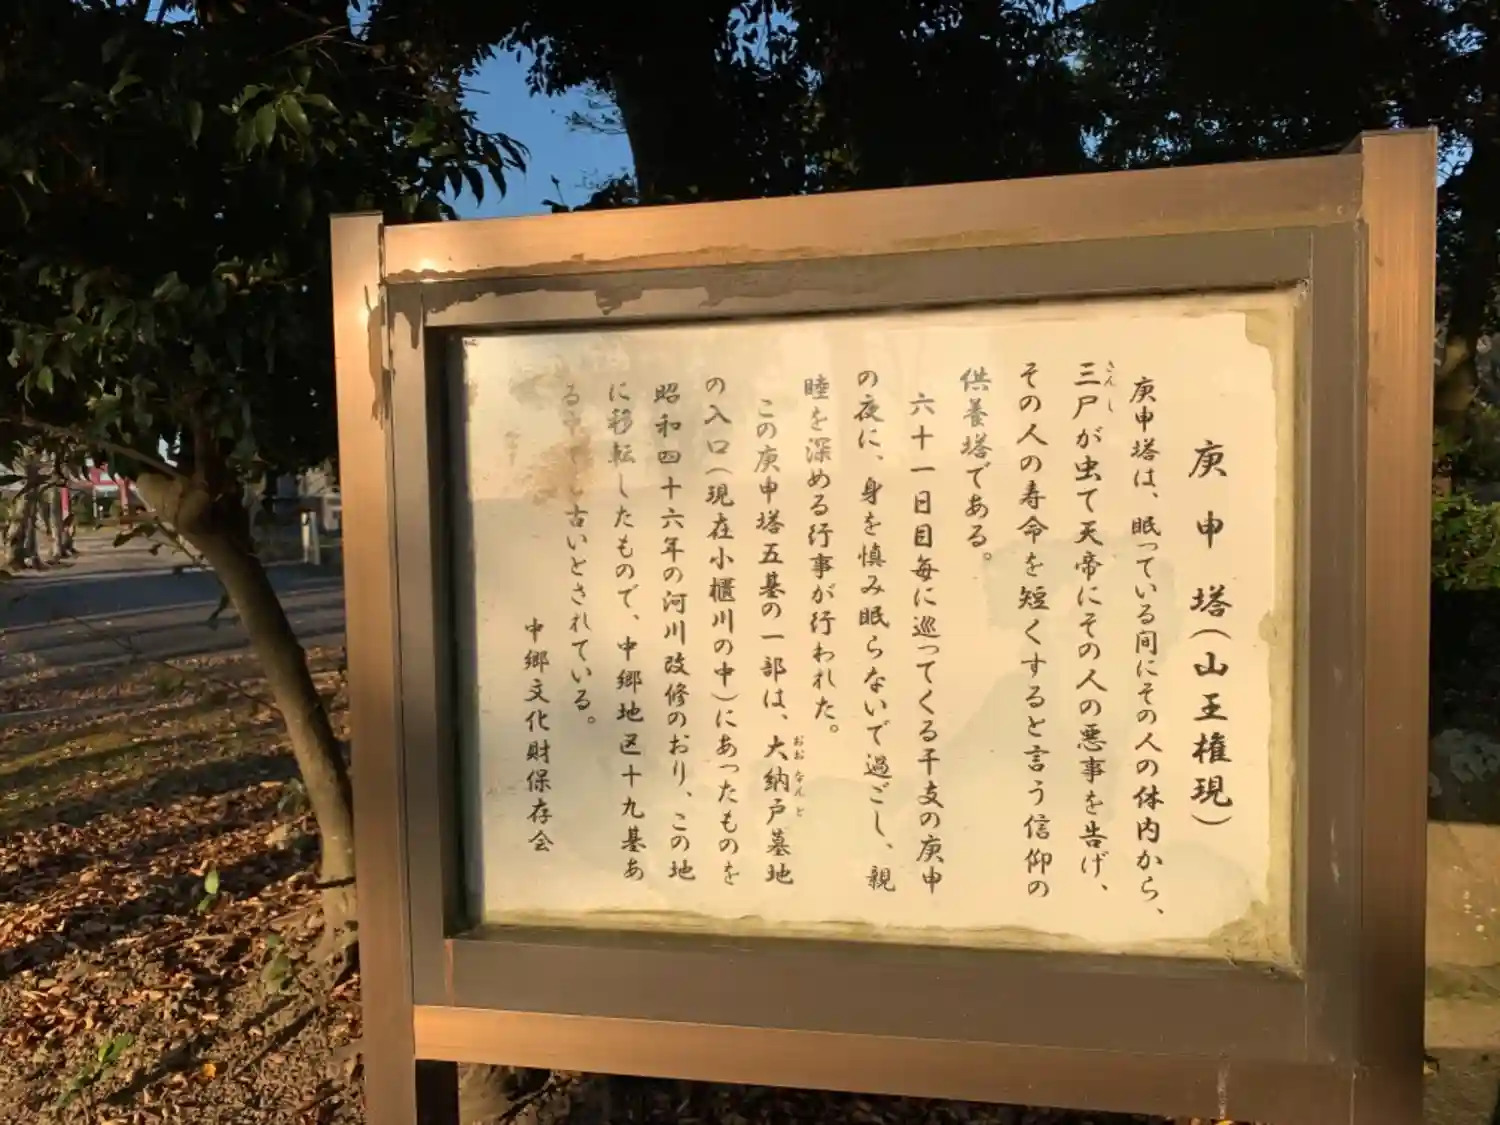 庚申塔(山王権現)
庚申塔は、眠っている間にその人の体内から、
三尸が虫て天帝にその人の悪事を告げ、
さんし
その人の寿命を短くすると言う信仰の
供養塔である。
六十一日目毎に巡ってくる干支の庚申
の夜に、身を慎み眠らないで過ごし、親
睦を深める行事が行われた。
この庚申塔五基の一部は、大納戸墓地
おおなんど
の入口(現在小櫃川の中)にあったものを
昭和四十六年の河川改修のおり、この地
に移転したもので、中郷地区十九基あ
る 古いとされている。
中郷文化財保存会